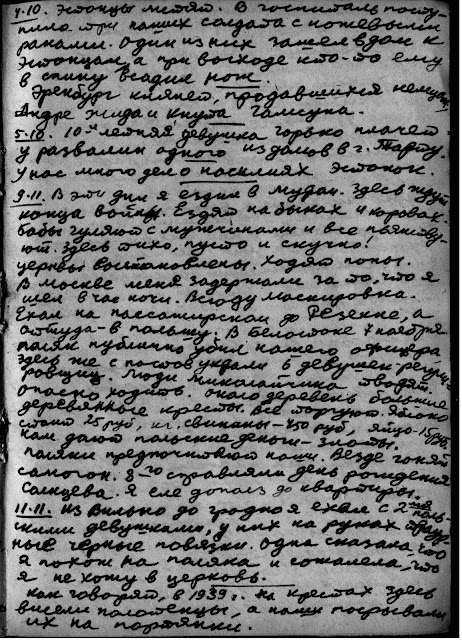 4.10. Эстонцы мстят. В госпиталь посту-
пило три наших солдата с ножевыми
ранами. Один из них зашел в дом к
эстонцам, а при выходе кто-то ему
в спину всадил нож.
Эренбург клянет, продавшихся немцам,
Андре Жида и Кнута Гамсуна.
5.10. 10-летняя девушка горько плачет
у развалин одного из домов в г. Тарту.
У нас много дел о насилиях эстонок.
9.11. В эти дни я ездил в Мудан. Здесь ждут
конца войны. Ездят на быках и коровах.
Бабы гуляют с мужчинами и все пьянству-
ют. Здесь тихо, пусто и скучно!
Церквы восстановлены. Ходят попы.
В Москве меня задержали за то, что я
шел в час ночи. Всюду маскировка.
Ехал на пассажирском до Резекне, а
оттуда - в Польшу. В Белостоке 7 ноября
поляк публично убил нашего офицера.
Здесь же с постов украли 6 девушек регули-
ровщиц. Люди Миколайчика творят.
Опасно ходить. Около деревень большие
деревянные кресты. Все торгуют. Яблоко
стоит 25 руб, кг. свинины - 450 руб, яйцо - 15 руб.
Нам дают польские деньги - злоты.
Поляки предпочитают наши. Везде гонят
самогон. 8-го справляли день рождения
Солнцева. Я еле дополз до квартиры.
11.11. Из Вильно до Гродно я ехал с 2-мя поль-
скими девушками, у них на руках траур-
ные черные повязки. Одна сказала, что
я похож на поляка и сожалела, что
я не хожу в церковь.
Как говорят, в 1939 г. на крестах здесь
висели полотенцы, а наши посрывали
их на портянки.